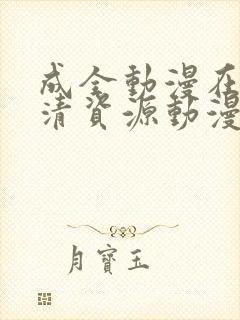 成全動漫在
清資源動漫
月寶玉